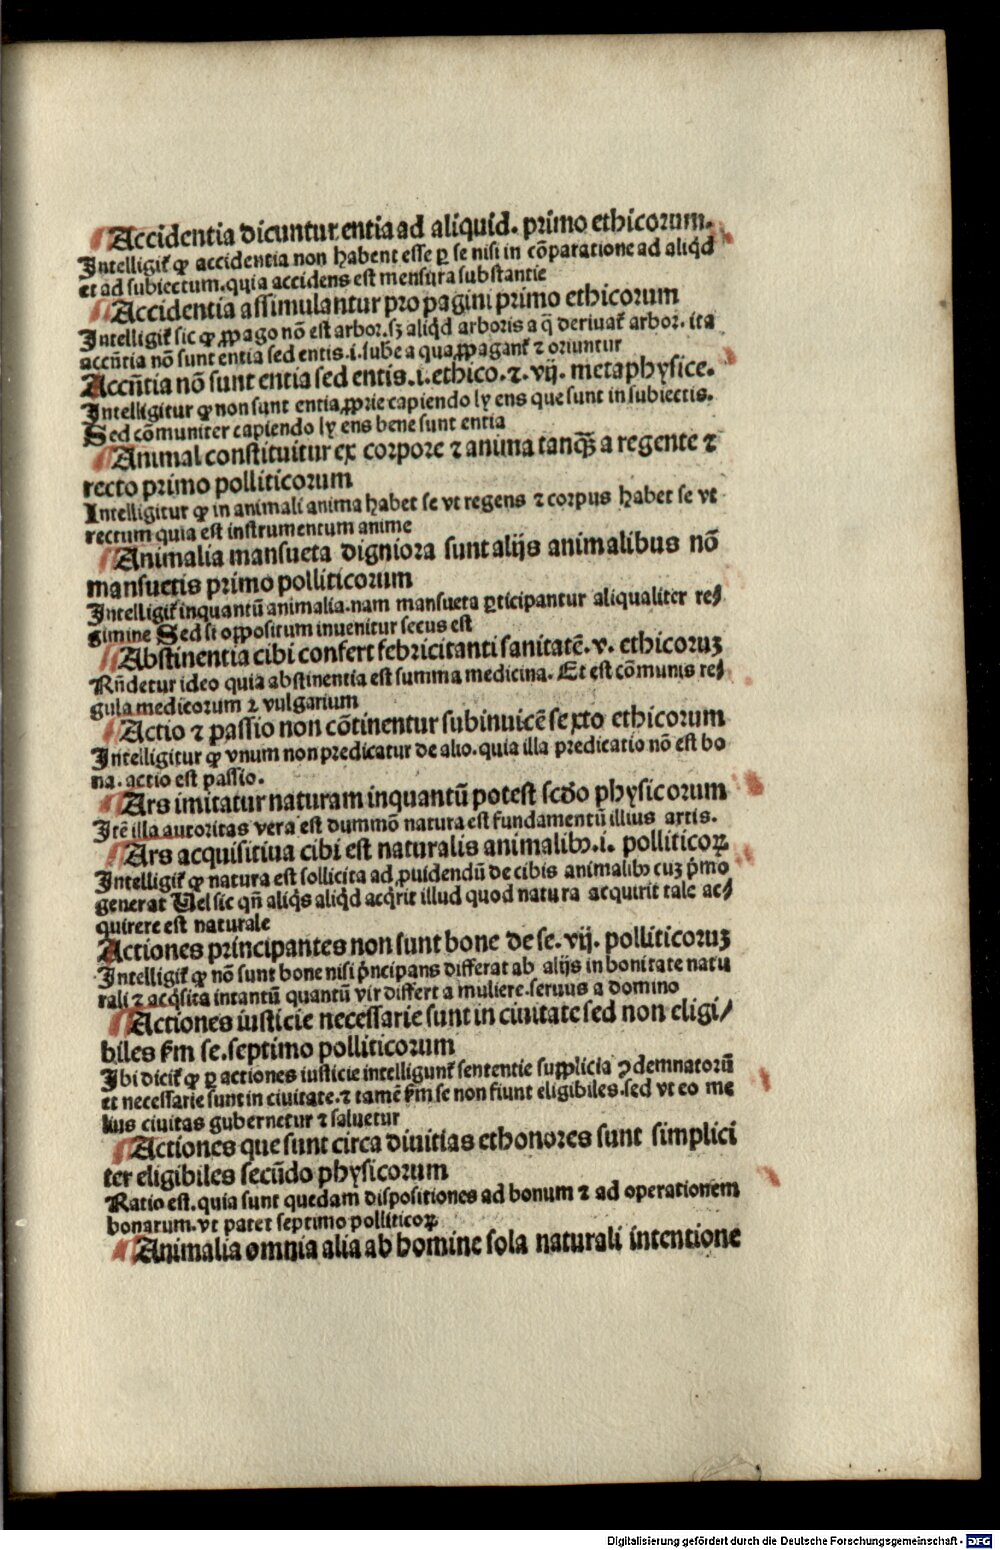 Accidentia dicuntur entia ad aliquid. primo ethicorum.
Intelligit̃ ꝙ accidentia non habent esse ꝑ se nisi in cōparatione ad aliqd̓
et ad subiectum. quia accidens est mensura substantie
Accidentia assimulantur pro pagini primo ethicorum
Intelligit̃ sic ꝙ ꝓpago nō est arbor. sꝫ aliqd̓ arboris a q̄ deriuat̃ arbor. ita
accn̄tia nō sunt entia sed entis .i. sube a qua ꝓpagant̃ ⁊ oriuntur
Accn̄tia nō sunt entia sed entis. i. ethico. ⁊. vij. metaphysice.
Intelligitur ꝙ non sunt entia ꝓprie capiendo ly ens que sunt in subiectis.
Sed cōmuniter capiendo ly ens bene sunt entia
Animal constituitur ex corpore ⁊ anima tanqꝫ̄ a regente ⁊
recto primo polliticorum
Intelligitur ꝙ in animali anima habet se vt regens ⁊ corpus habet se vt
rectum quia est instrumentum anime
Animalia mansueta digniora sunt alijs animalibus nō
mansuetis primo polliticorum
Intelligit̃ inquantū animalia. nam mansueta ꝑticipantur aliqualiter re⸗
gimine Sed si oppositum inuenitur secus est
Abstinentia cibi confert febricitanti sanitatē. v. ethicoruꝫ
Rn̄detur ideo quia abstinentia est summa medicina. Et est cōmunis re⸗
gula medicorum ⁊ vulgarium
Actio ⁊ passio non cōtinentur subinuicē sexto ethicorum
Intelligitur ꝙ vnum non predicatur de alio. quia illa predicatio nō est bo
na. actio est passio.
Ars imitatur naturam inquantū potest scd̓o physicorum
Itē illa autoritas vera est dummō natura est fundamentū illius artis.
Ars acquisitiua cibi est naturalis animalibꝰ. i. polliticoꝝ
Intelligit̃ ꝙ natura est sollicita ad ꝓuidendū de cibis animalibꝰ cuꝫ p̓mo
generat Uel sic qn̄ aliq̓s aliqd̓ acq̓rit illud quod natura acquirit tale ac⸗
quirere est naturale
Actiones principantes non sunt bone de se. vij. polliticoruꝫ
Intelligit̃ ꝙ nō sunt bone nisi p̓ncipans differat ab alijs in bonitate natu
rali ⁊ acq̓sita intantū quantū vir differt a muliere. seruus a domino
Actiones iusticie necessarie sunt in ciuitate sed non eligi⸗
biles ẜm se. septimo polliticorum
Ibi dicit̃ ꝙ ꝑ actiones iusticie intelligunt̃ sententie supplicia ꝯdemnatorū
et necessarie sunt in ciuitate. ⁊ tamē ẜm se non fiunt eligibiles. sed vt eo me
lius ciuitas gubernetur ⁊ saluetur
Actiones que sunt circa diuitias et honores sunt simplici
ter eligibiles secūdo physicorum
Ratio est. quia sunt quedam dispositiones ad bonum ⁊ ad operationem
bonarum. vt patet septimo polliticoꝝ
Animalia omnia alia ab homine sola naturali intentione
Digitalisierung gefördert durch die Deutsche Forschungsgemeinschaft - DFG